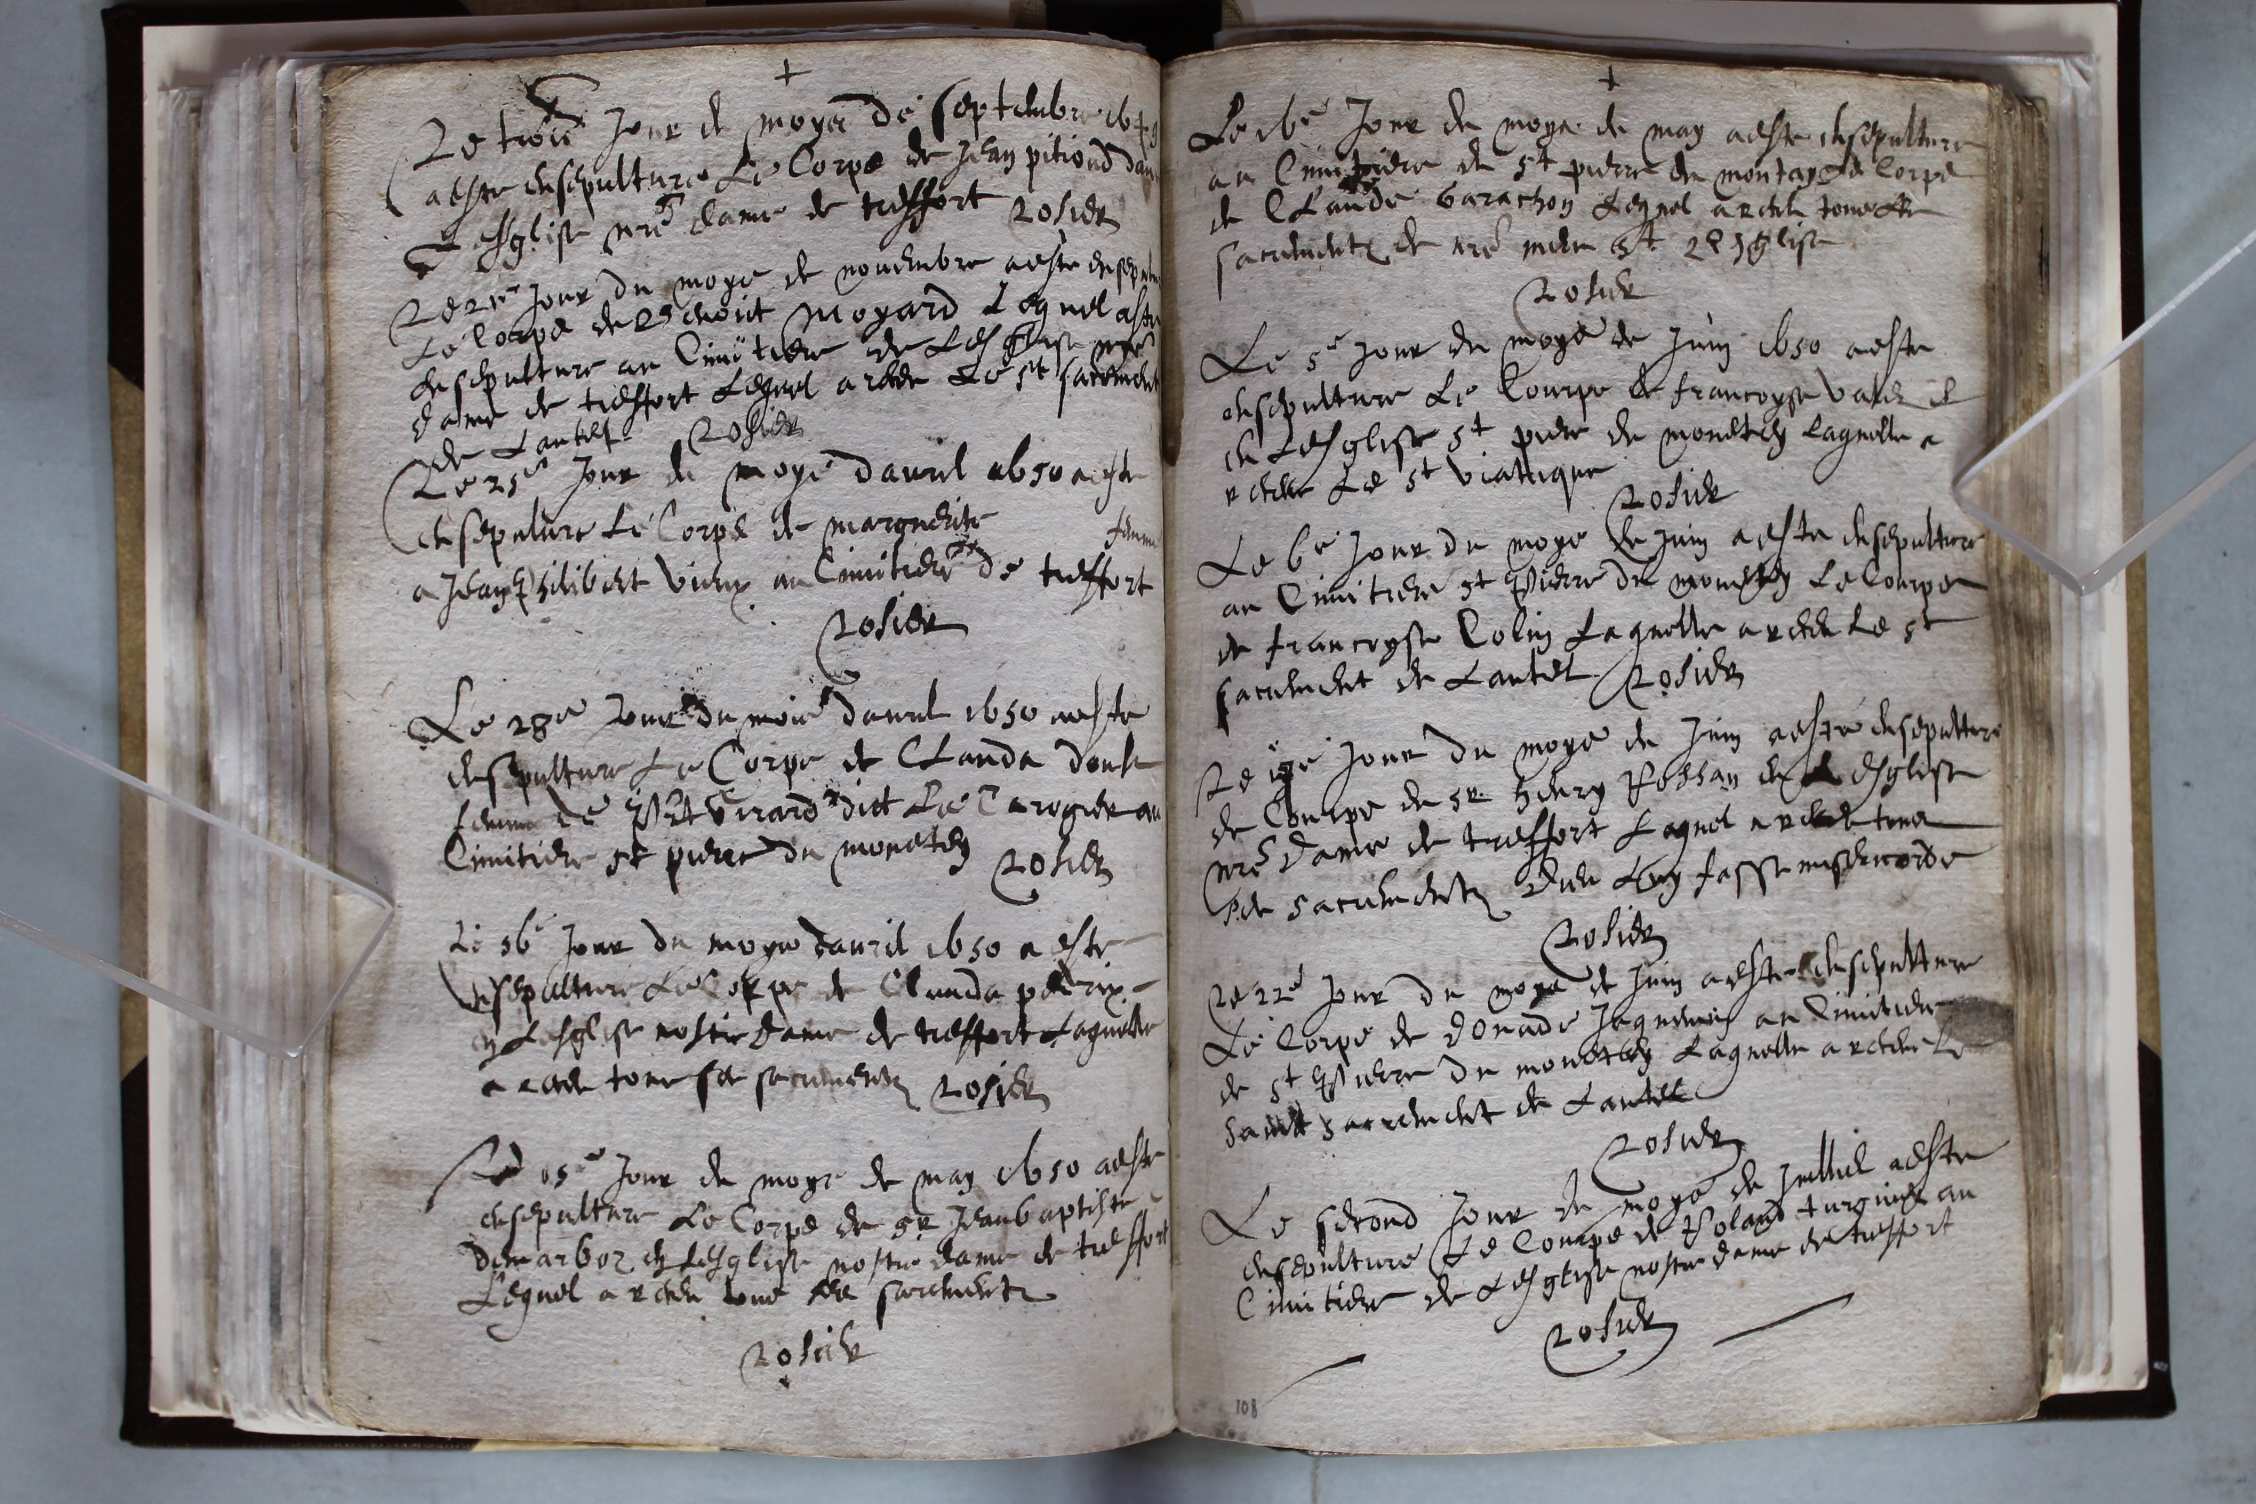 +
Le trois Jour du moys de septembre 1649
a este ensepulture Le Corps de Jean pitiond dans
esglise nre dame de treffort Rosier
Le 22e Jour du moys de nouembre a este ensepulture
Le Corps de Moyard Lequel a este
ensepulture au Cimitiere de Lesglise nre
dame de treffort Lequel a receu Le st sacrement
de Lautel Rosier
Le 25e Jour du moys dauril 1650 a este
ensepulture Le Corps de marguerite
femme
a Jean philibert vieux au Cimitiere de treffort
Rosier
Le 28e Jour du mois dauril 1650 a este
ensepulture Le Corps de Clauda
femme de dict Le au
Cimitiere st pierre du monetey Rosier
Le Jour du moys dauril 1650 a este
ensepulture Le Corps de Clauda perrix
en Lesglise nostre dame de treffort Laquelle
a receu tous ses sacrements Rosier
Le 15e Jour du moys de may 1650 a este
ensepulture Le Corps de sr Jean baptiste
demarboz en Lesglise nostre dame de treffort
Lequel a receu tous ses sacrements
Rosier
+
Le 16e Jour du moys de may a este ensepulture
au Cimitiere de st pierre du Le Corps
de Claude Garachon Lequel a receu tous Les
sacrements de nre mere st Esglise
Rosier
Le 5e Jour du moys de Juin 1650 a este
ensepulture Le Courps de francoyse
en Lesglise st pierre du monetey Laquelle a
receu Le st viatique Rosier
Le 6e Jour du moys de Juin a este ensepulture
au Cimitiere st Pierre du monetey Le Courps
de francoyse Colin Laquelle a receu Le st
sacrement de Lautel Rosier
Le Jour du moys de Juin a este ensepulture
Le Courps de sr henry Rossan en Lesglise
nre dame de treffort Lequel a receu tous
ses sacrements dieu Luy fasse misericorde
Rosier
Le 22e Jour du moys de Juin a este ensepulture
Le Corps de donade Jaquemin au Cimitiere
de st Pierre du monetey Laquelle a receu Le
sainct sacrement de Lautel
Rosier
Le second Jour du moys de Juilliet a este
ensepulture Le Courps de Roland au
Cimitiere de Lesglise nostre dame de treffort
Rosier
108